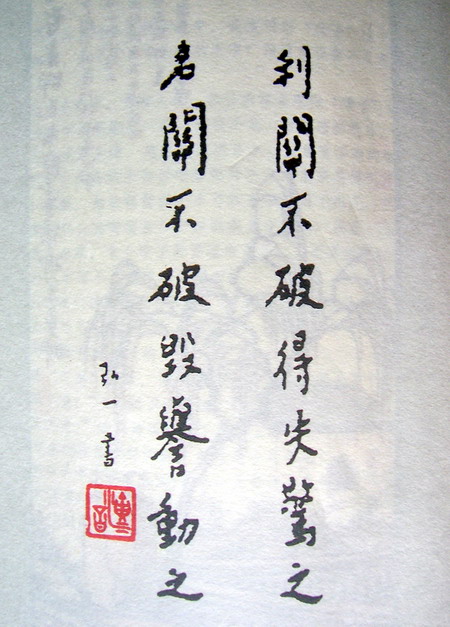 利關不破得失驚之
名關不破毀譽動之
弘一書